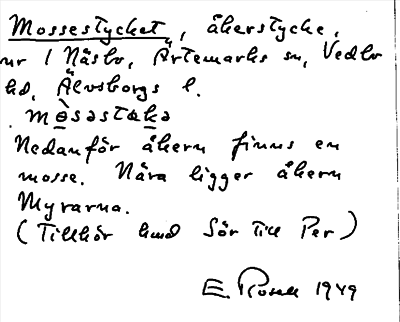 Mossestycket, åkerstycke,
nr 1 Näsbo, Ärtemarks sn, Vedbo
hd, Älvsborgs l.
mo̱̊səstək̬ə
Nedanför åkern finns en
mosse. Nära ligger åkern
Myrarna.
(Tillhör hmd Sör Till Per)
E. Rosell 1949